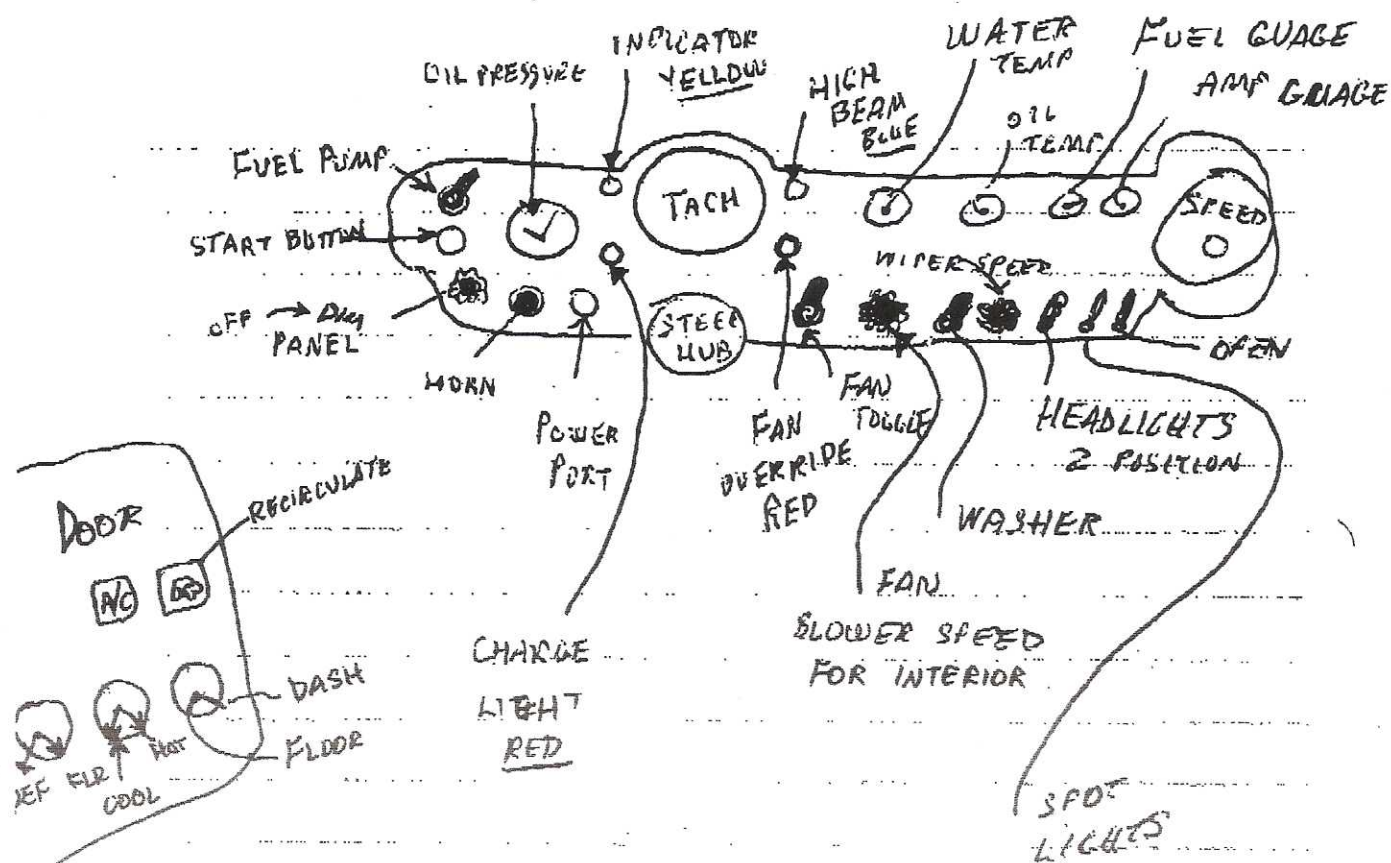 INDICATOR
YELLOW
OIL PRESSURE
HIGH
BEAM
BLUE
WATER
TEMP
OIL
TEMP
FUEL GUAGE
AMP GUAGE
FUEL PUMP
START BUTTON
OFF → DIM
PANEL
TACH
SPEED
WIPER SPEED
STEER
HUB
OPEN
HORN
POWER
PORT
FAN
OVERRIDE
RED
FAN
TOGGLE
HEADLIGHTS
2 POSITION
WASHER
FAN
BLOWER SPEED
FOR INTERIOR
CHARGE
LIGHT
RED
SPOT
LIGHTS
DOOR
RECIRCULATE
A/C
DASH
FLOOR
DEF
FLR
COOL
HOT